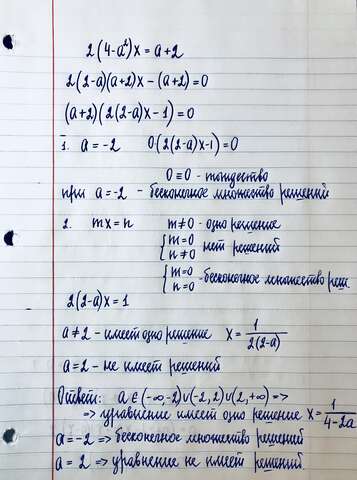 2(4-a²)x = a+2
2(2-a)(a+2)x - (a+2) = 0
(a+2)(2(2-a)x - 1) = 0
1. a = -2 0(2(2-a)x-1) = 0
0 ≡ 0 - тождество
при a = -2 - бесконечное множество решений
2. mx = n m ≠ 0 - одно решение
{ m = 0
n ≠ 0 нет решений
{ m = 0
n = 0 - бесконечное множество реше
2(2-a)x = 1
a ≠ 2 - имеет одно решение x = 1/(2(2-a))
a = 2 - не имеет решений
Ответ: a ∈ (-∞, -2) ∪ (-2, 2) ∪ (2, +∞) =>
=> уравнение имеет одно решение x = 1/(4-2a)
a = -2 => бесконечное множество решений
a = 2 => уравнение не имеет решений.